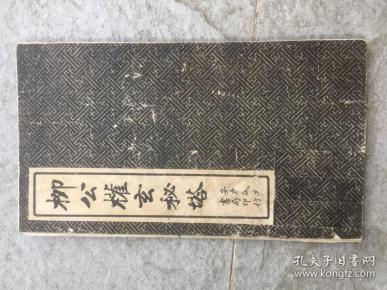 柳公權玄秘塔
書局印行
孔夫子旧书网
www.kongfz.com